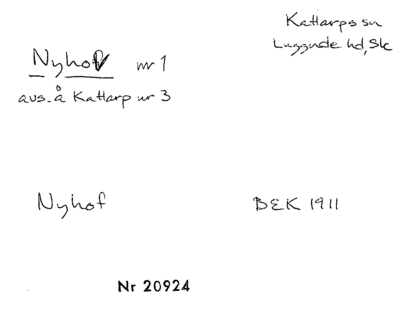 Kattarps sn
Luggude hd, Sk
Nyhof nr 1
avs. å Kattarp nr 3
Nyhof
BEK 1911
Nr 20924